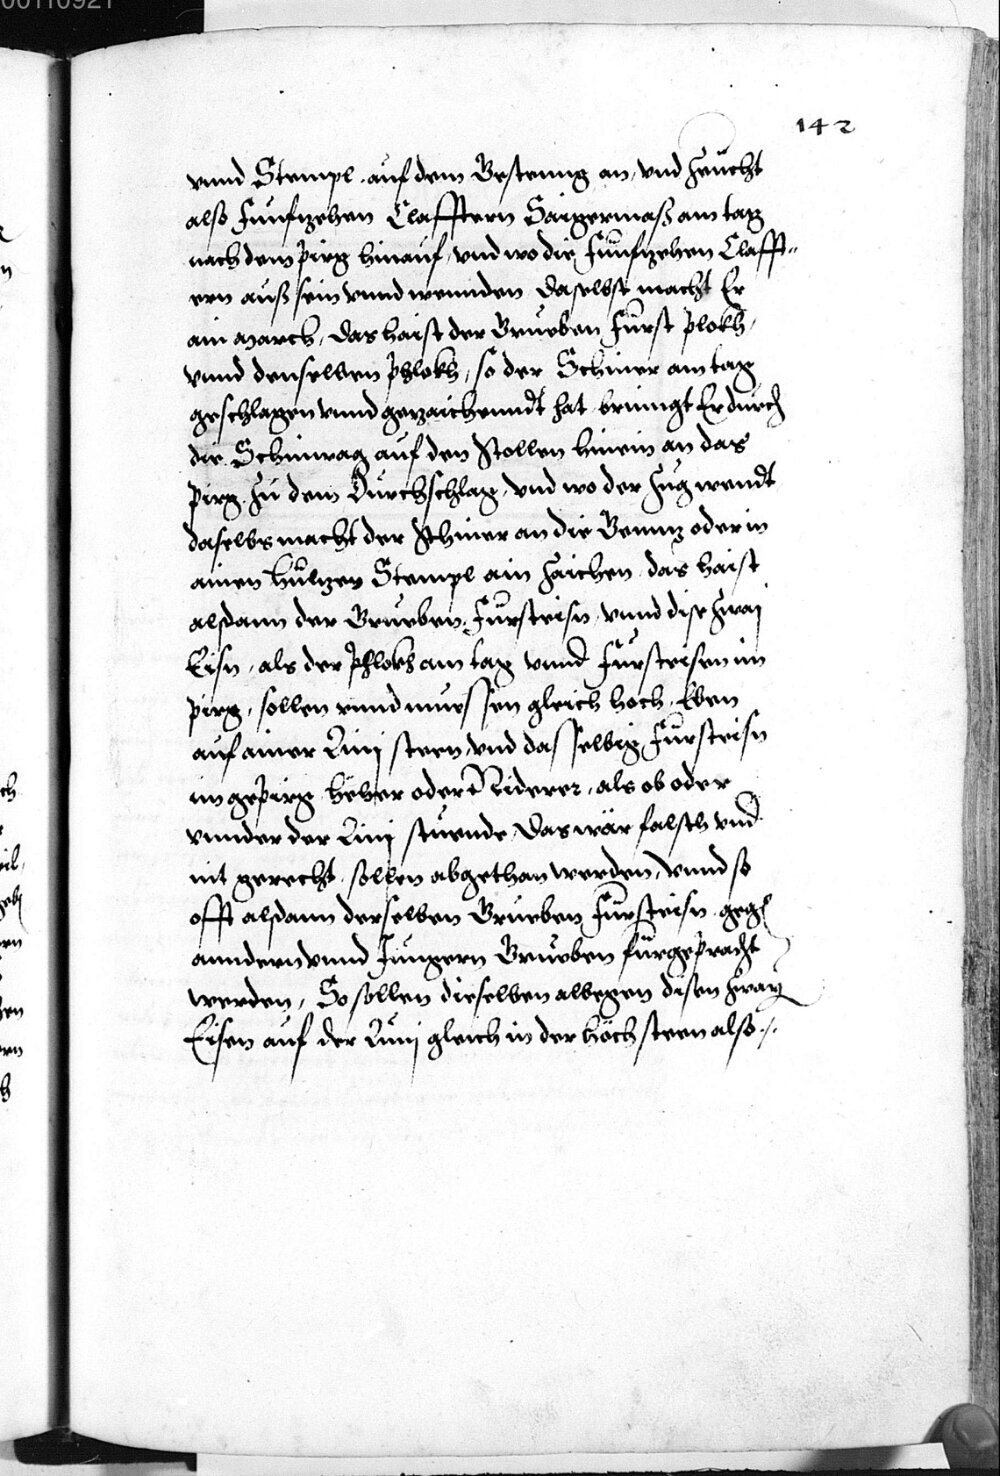 142
vnnd Stempl auf dem Gesteung an, vnd zeucht
also Funfzehen Claffttern Saigermaß am tag
nach dem pirg hinauf, vnd wo die Funfzehen Clafft-
ern auß sein vnnd wennden daselbst macht Er
ain march, das haist der Grueben Furst plokh,
vnnd denselben Phlokh, so der Schiner am tag
geschlagen vnnd gezaichenndt hat bringt Er durch
die Schinwag auf den Stollen hinein an das
pirg zu dem Durchschlag, vnd wo der zug wendt
daselbs macht der Schiner an die Venntz oder in
ainen hultzen Stempl ain zaichen das haist
alsdann der Grueben Fursteisn, vnnd dise zwai
Eisn, als der Phlokh am tag vnnd Fursteisen im
pirg, sollen vnnd muessen gleich hoch, Eben
auf ainer Linj steen vnd dasselbig Fursteisn
im gepirg höher oder Niderer, als ob oder
vnnder der Linj stuende, Das wär falsch vnd
nit gerecht sollen abgethan werden, vnnd so
offt alsdann derselben Grueben Fursteisn gegen
anndern vnnd Jungern Grueben fürgepracht
werden, So sollen dieselben albegen disen zway
Eisen auf der Linj gleich in der höch steen also